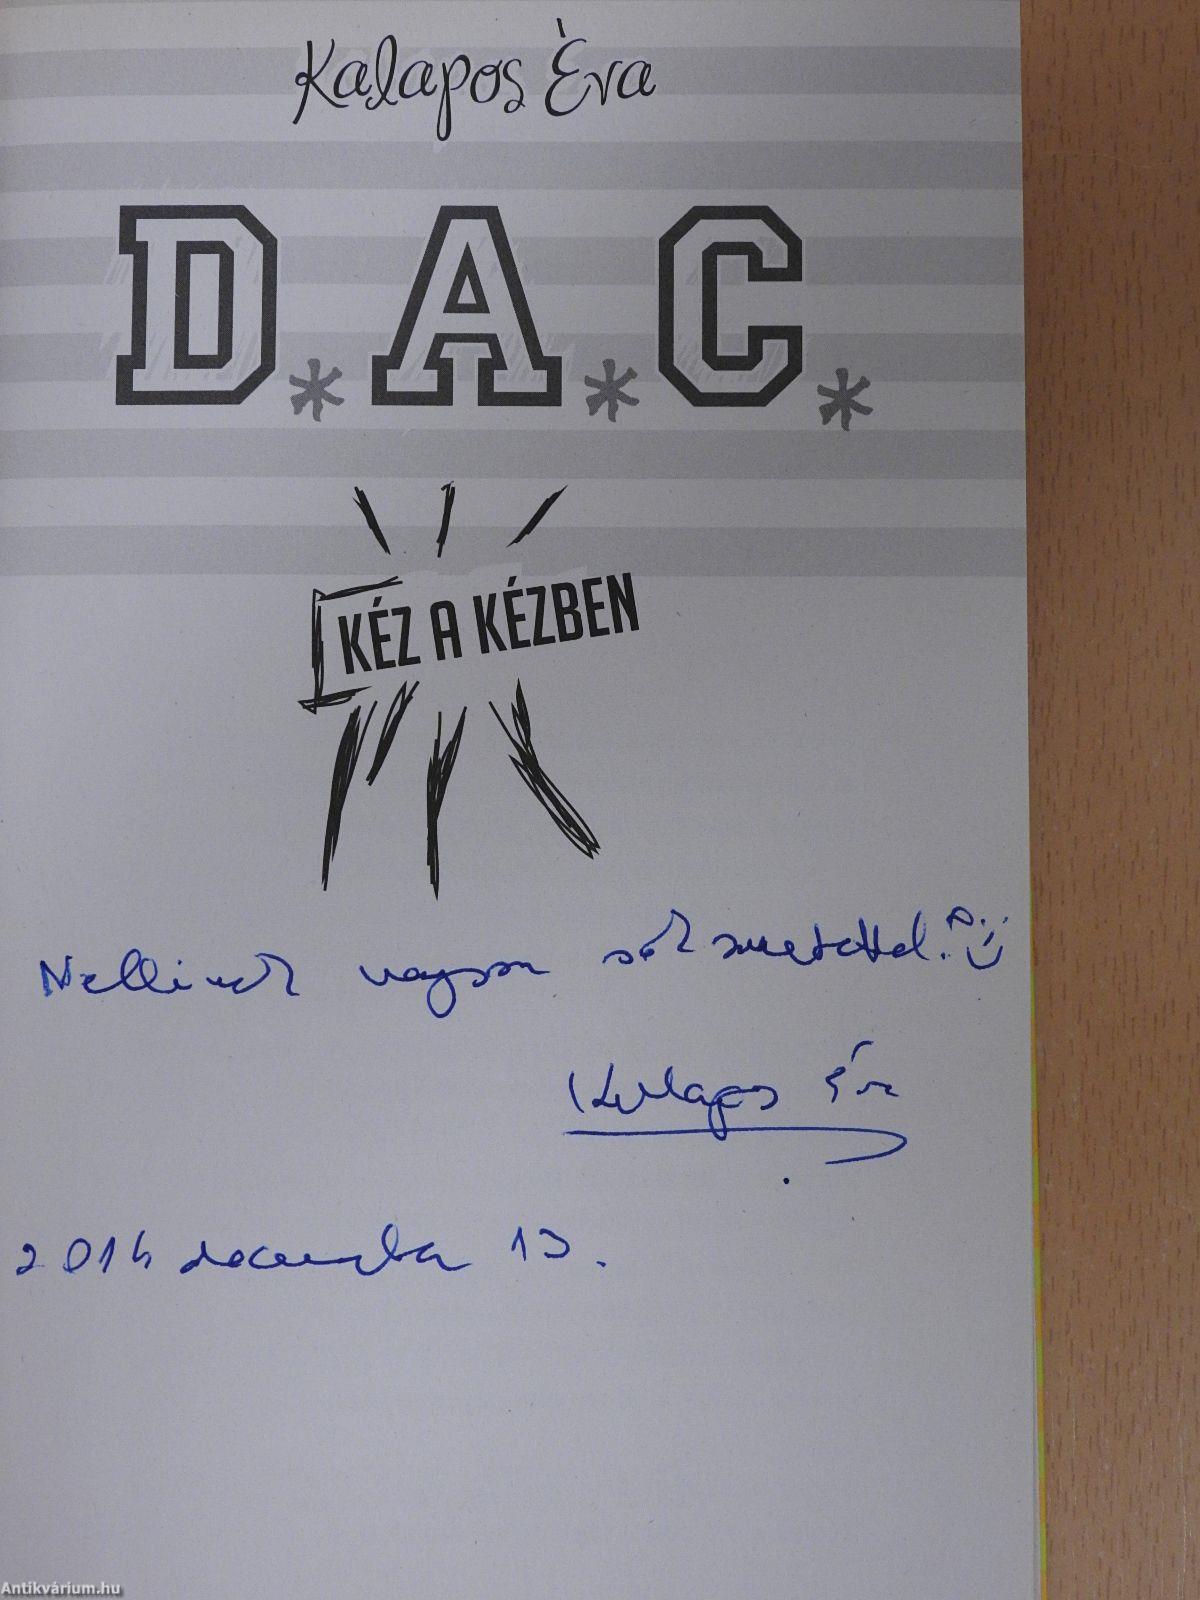 Kalapos Éva
D.A.C.
KÉZ A KÉZBEN
Nellinek nagyon sok szeretettel. :)
Kalapos Éva
december 13.
Antikvárium.hu